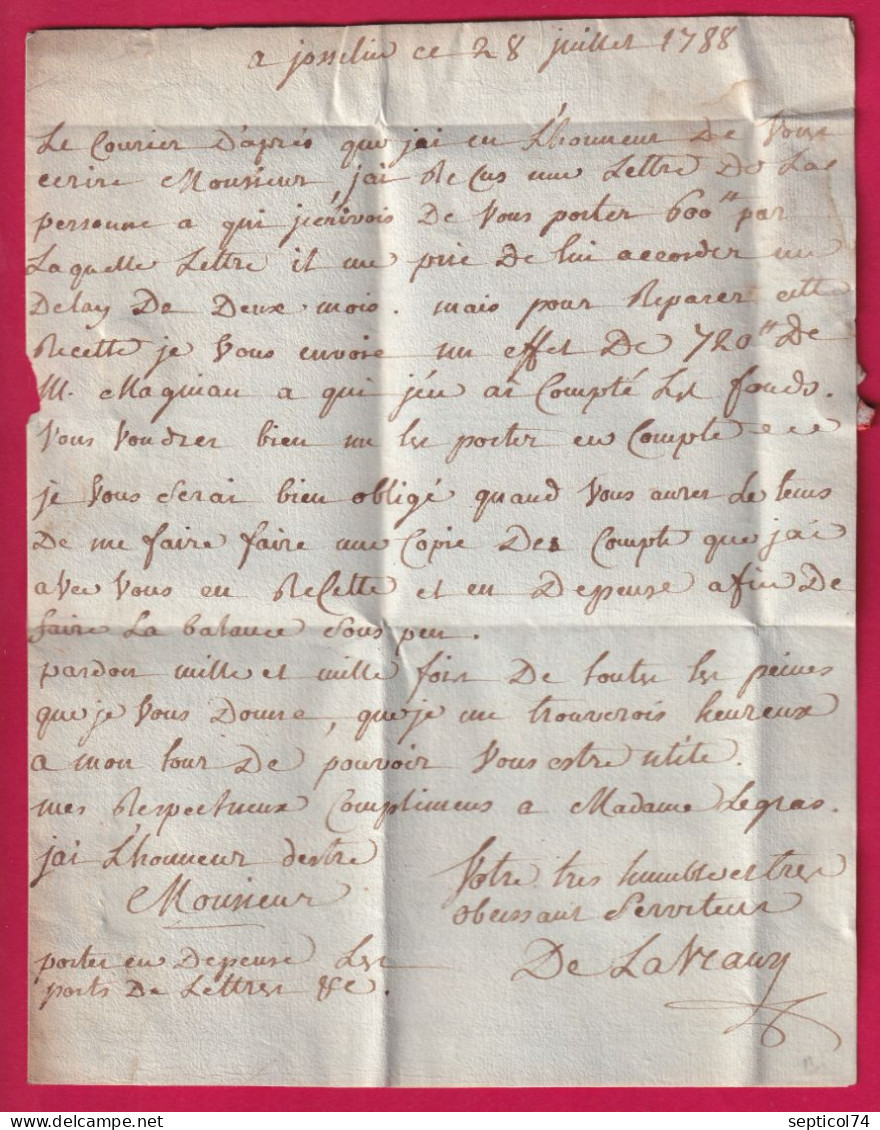 a josselin ce 28 juillet 1788
Le Courier D'après que j'ai eu L'honneur De Vous
ecrire Monsieur, j'ai Recus une Lettre De La
personne a qui j'écrivois De Vous porter 600# par
Laquelle Lettre il me prie De lui accorder un
Delay De Deux mois. mais pour Reparer cette
Recette je Vous envoie un effet De 720# De
M. Magniau a qui j'en ai Compté Les fonds.
Vous Voudrer bien me les porter en Compte
je Vous Serai bien obligé quand Vous aurer Le tems
De me faire faire une Copie Des Compte que j'ai
avec Vous en ReCette et en Depense afin De
faire La balance Sous peu.
pardon mille et mille fois De toutes les peines
que je Vous Donne, que je me trouverois heureux
a mon tour De pouvoir Vous estre utile.
mes Respectueux Complimens a Madame Legras.
j'ai L'honneur d'estre
Monsieur
Votre tres humble et tres
obeissant Serviteur
De LaVeauy
porter en Depense Les
ports De Lettres &c.
septicol74